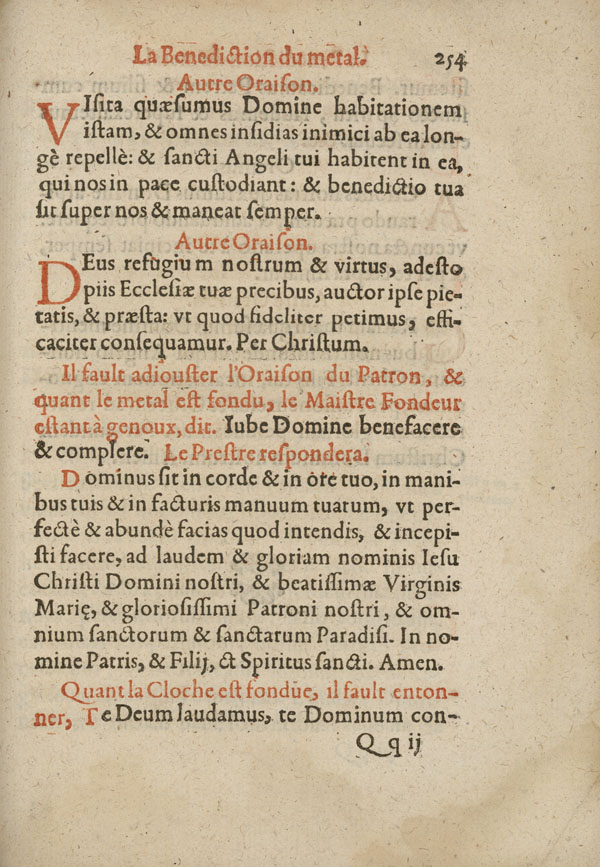 La Benediction du metal. 254
Autre Oraiſon.
VIſita quæſumus Domine habitationem
iſtam, & omnes inſidias inimici ab ea lon-
gè repellè: & ſancti Angeli tui habitent in ea,
qui nos in pace cuſtodiant: & benedictio tua
ſit ſuper nos & maneat ſemper.
Autre Oraiſon.
DEus refugium noſtrum & virtus, adeſto
piis Eccleſiæ tuæ precibus, auctor ipſe pie-
tatis, & præſta: vt quod fideliter petimus, effi-
caciter conſequamur. Per Chriſtum.
Il fault adiouſter l'Oraiſon du Patron, &
quant le metal eſt fondu, le Maiſtre Fondeur
eſtant à genoux, dit. Iube Domine benefacere
& complere. Le Preſtre reſpondera.
Dominus ſit in corde & in ore tuo, in mani-
bus tuis & in facturis manuum tuarum, vt per-
fectè & abundè facias quod intendis, & incepi-
ſti facere, ad laudem & gloriam nominis Ieſu
Chriſti Domini noſtri, & beatiſſimæ Virginis
Marię, & glorioſiſſimi Patroni noſtri, & om-
nium ſanctorum & ſanctarum Paradiſi. In no-
mine Patris, & Filij, & Spiritus ſancti. Amen.
Quant la Cloche eſt fondūe, il fault enton-
ner, Te Deum laudamus, te Dominum con-
Qq ij